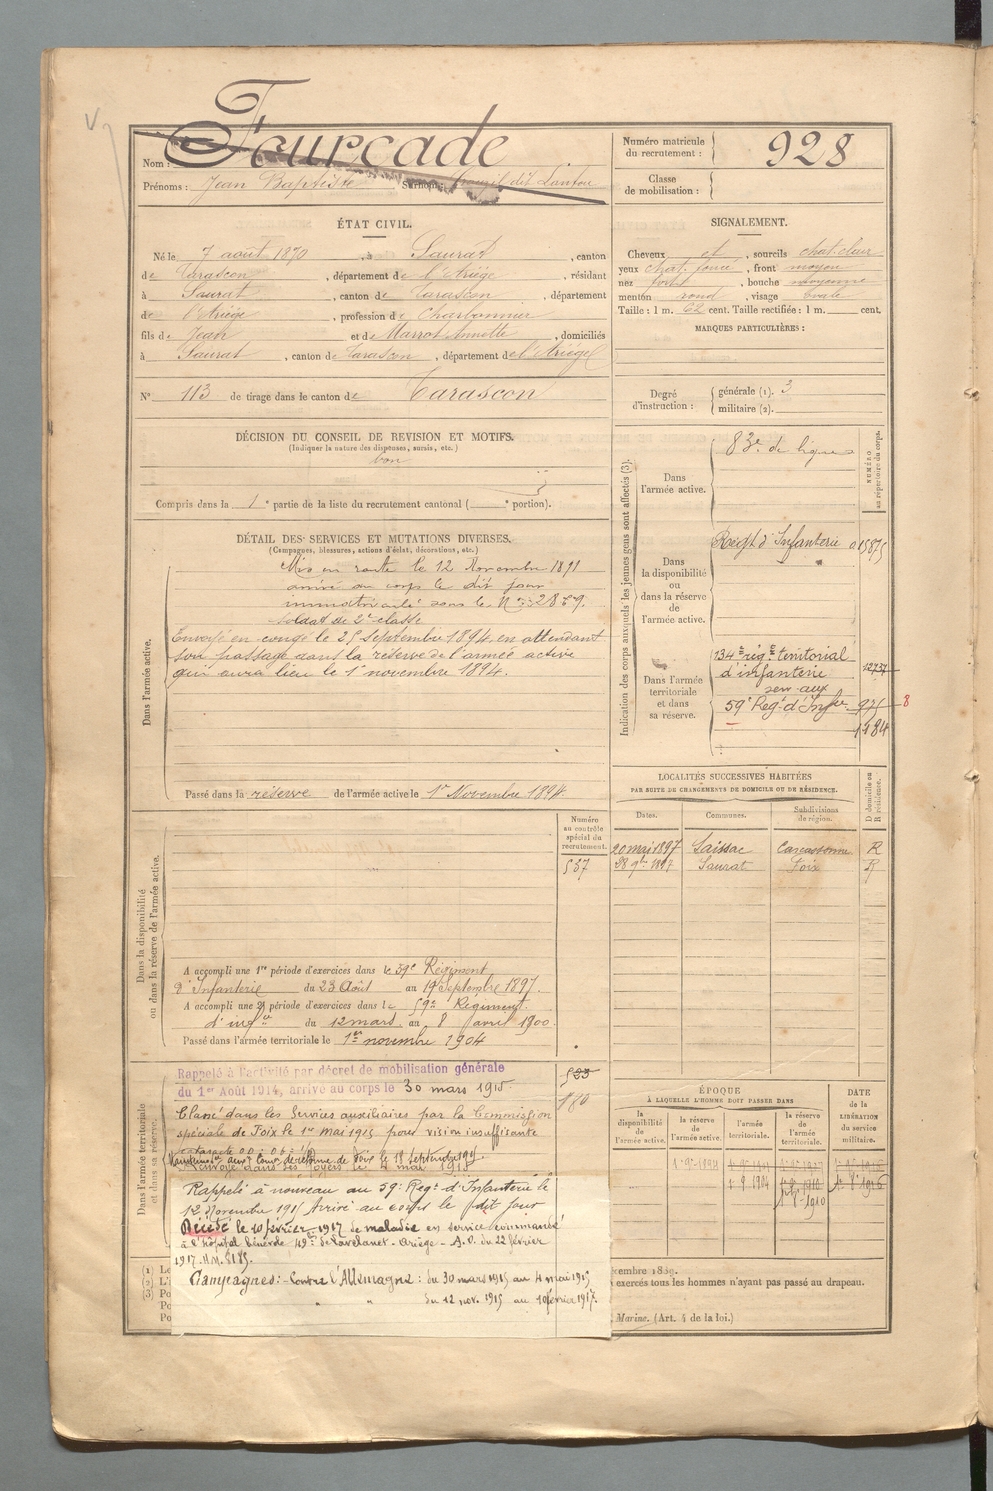 Nom : Fourcade
Prénoms : Jean Baptiste Surnoms : dit Lantou
Numéro matricule du recrutement : 928
Classe de mobilisation :
ÉTAT CIVIL.
Né le 7 août 1870, à Saurat, canton
de Tarascon, département de l'Ariège, résidant
à Saurat, canton de Tarascon, département
de l'Ariège, profession de Charbonnier
fils de Jean et de Marrot Annette, domiciliés
à Saurat, canton de Tarascon, département de l'Ariège
N° 113 de tirage dans le canton de Tarascon
SIGNALEMENT.
Cheveux et, sourcils chat. clair
yeux chat. foncé, front moyen
nez fort, bouche moyenne
menton rond, visage ovale
Taille : 1 m. 62 cent. Taille rectifiée : 1 m. cent.
MARQUES PARTICULIÈRES :
Degré d'instruction : générale (1). 3
militaire (2).
DÉCISION DU CONSEIL DE REVISION ET MOTIFS.
(Indiquer la nature des dispenses, sursis, etc.)
bon
Compris dans la 1e partie de la liste du recrutement cantonal ( e portion).
DÉTAIL DES SERVICES ET MUTATIONS DIVERSES.
(Campagnes, blessures, actions d'éclat, décorations, etc.)
Dans l'armée active.
Mis en route le 12 Novembre 1891
arrivé au corps le dit jour
immatriculé sous le N°
soldat de 2e classe
Envoyé en congé le 25 Septembre 1894 en attendant
son passage dans la réserve de l'armée active
qui aura lieu le 1er novembre 1894.
Passé dans la réserve de l'armée active le 1er Novembre 1894.
Indication des corps auxquels les jeunes gens sont affectés (3).
NUMÉRO au répertoire du corps.
Dans l'armée active.
83e de ligne
Dans la disponibilité ou dans la réserve de l'armée active.
Régt d'Infanterie
Dans l'armée territoriale et dans sa réserve.
134e rég.t territorial
d'infanterie
serv. aux
59e Reg.t d'Infie
LOCALITÉS SUCCESSIVES HABITÉES
PAR SUITE DE CHANGEMENTS DE DOMICILE OU DE RÉSIDENCE.
Dates. Communes. Subdivisions de région. D domicile ou R résidence.
20 mai 1897 Saissac Carcassonne R
28 9bre 1897 Saurat Foix R
Dans la disponibilité ou dans la réserve de l'armée active.
Numéro au contrôle spécial du recrutement.
537
A accompli une 1re période d'exercices dans le 59e Régiment
d'Infanterie du 23 Août au 19 Septembre 1897.
A accompli une 2e période d'exercices dans le 59e Régiment
d'infie du 12 mars au 8 avril 1900.
Passé dans l'armée territoriale le 1er novembre 1904
Dans l'armée territoriale et dans sa réserve.
Rappelé à l'activité par décret de mobilisation générale
du 1er Août 1914, arrivé au corps le 30 mars 1915
Classé dans les Services auxiliaires par la Commission
spéciale de Foix le 1er mai 1915 pour vision insuffisante
Maintenu serv. aux. Com. de réforme de Foix le 18 septembre 1915.
Renvoyé dans ses foyers le 4 mai 1915
Rappelé à nouveau au 59e Reg.t d'Infanterie le
12 Novembre 1915 Arrivé au corps le dit jour
Décédé le 10 février 1917 de maladie en service commandé
à l'hôpital bénévole 49bis de Lavelanet - Ariège - A.D. du 22 février
1917.
Campagnes : - Contre l'Allemagne : du 30 mars 1915 au 4 mai 1915
" " du 12 nov. 1915 au 10 février 1917.
ÉPOQUE
À LAQUELLE L'HOMME DOIT PASSER DANS
la disponibilité de l'armée active. la réserve de l'armée active. l'armée territoriale. la réserve de l'armée territoriale.
DATE de la LIBÉRATION du service militaire.
exercés tous les hommes n'ayant pas passé au drapeau.
Marine. (Art. 4 de la loi.)